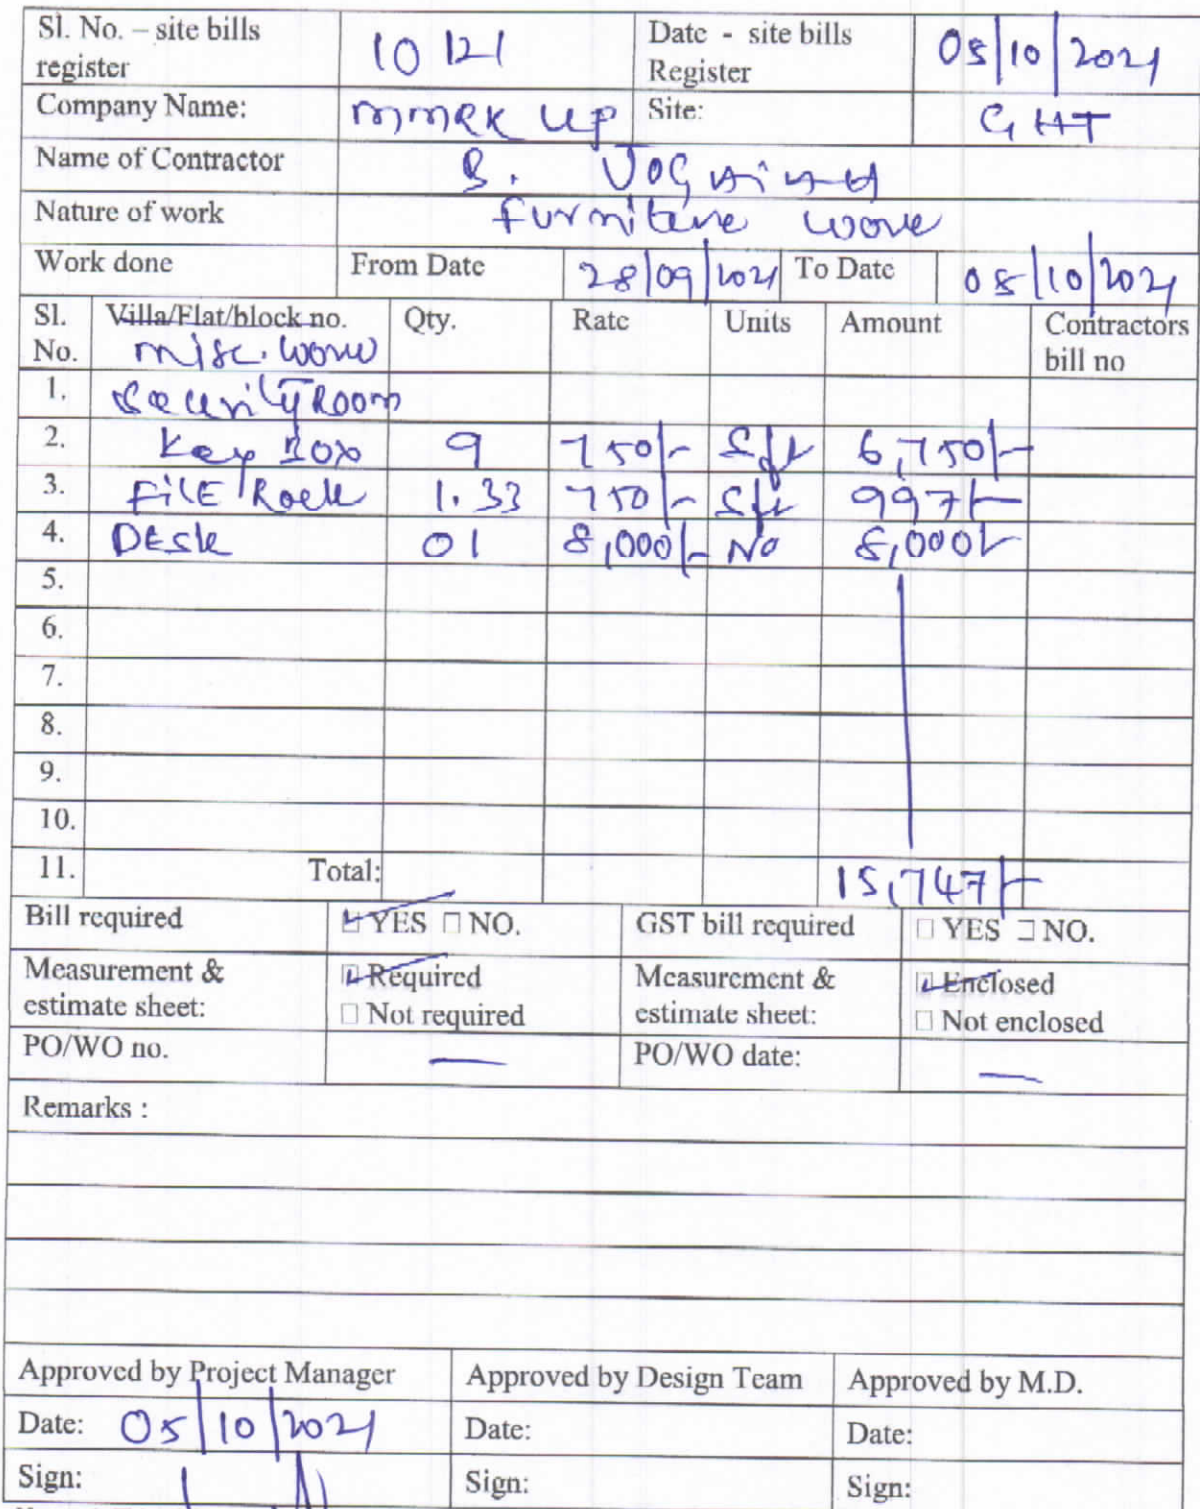 Sl. No. – site bills register 10121 Date - site bills Register 05/10/2021
Company Name: MMRK UP Site: GHT
Name of Contractor B.
Nature of work Furniture work
Work done From Date 28/09/2021 To Date 05/10/2021
Sl. No. Villa/Flat/block no. Misc. work Qty. Rate Units Amount Contractors bill no
1. Security Room
2. Key Box 9 750/- Sft 6,750/-
3. FilE Rack 1.33 750/- Sft 997/-
4. DEsk 01 8,000/- No 8,000/-
5.
6.
7.
8.
9.
10.
11. Total: 15,747/-
Bill required YES NO. GST bill required YES NO.
Measurement & estimate sheet: Required Not required Measurement & estimate sheet: Enclosed Not enclosed
PO/WO no. — PO/WO date: —
Remarks :
Approved by Project Manager Approved by Design Team Approved by M.D.
Date: 05/10/2021 Date: Date:
Sign: Sign: Sign: